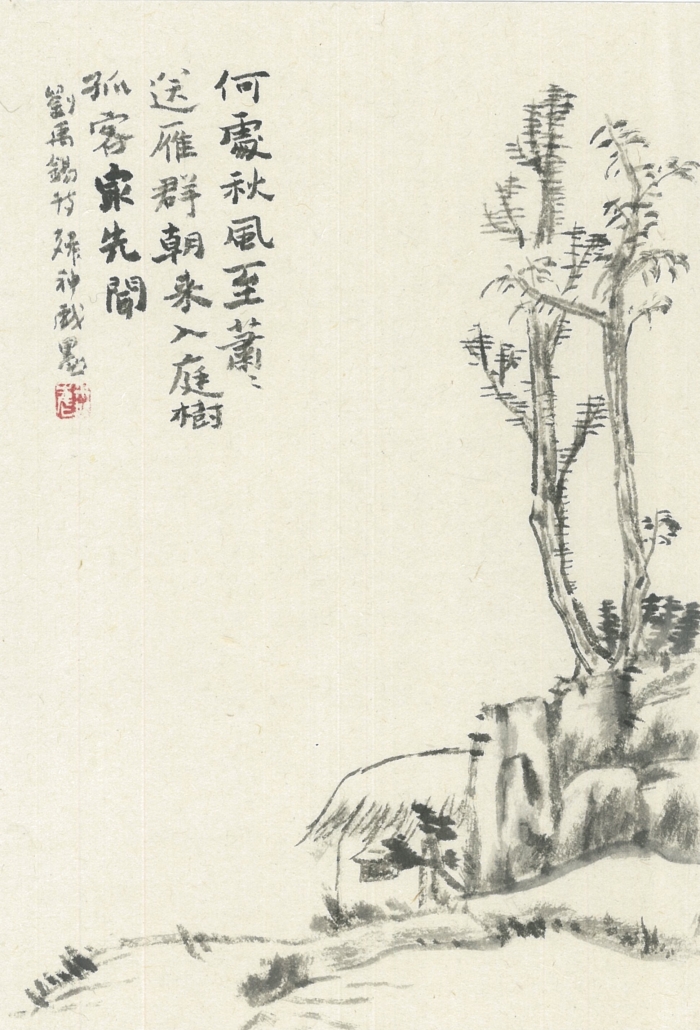 何處秋風至蕭〻
送雁群朝來入庭樹
孤客最先聞
劉禹錫詩 戲墨